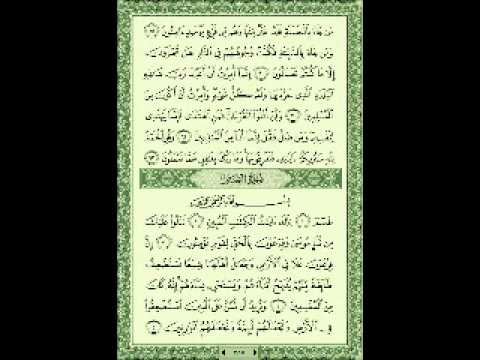 مَن جَآءَ بِٱلْحَسَنَةِ فَلَهُۥ خَيْرٌ مِّنْهَا وَهُم مِّن فَزَعٍ يَوْمَئِذٍ ءَامِنُونَ ٨٩
وَمَن جَآءَ بِٱلسَّيِّئَةِ فَكُبَّتْ وُجُوهُهُمْ فِى ٱلنَّارِ هَلْ تُجْزَوْنَ
إِلَّا مَا كُنتُمْ تَعْمَلُونَ ٩٠ إِنَّمَآ أُمِرْتُ أَنْ أَعْبُدَ رَبَّ هَٰذِهِ
ٱلْبَلْدَةِ ٱلَّذِى حَرَّمَهَا وَلَهُۥ كُلُّ شَىْءٍ وَأُمِرْتُ أَنْ أَكُونَ مِنَ
ٱلْمُسْلِمِينَ ٩١ وَأَنْ أَتْلُوَا۟ ٱلْقُرْءَانَ فَمَنِ ٱهْتَدَىٰ فَإِنَّمَا يَهْتَدِى
لِنَفْسِهِۦ وَمَن ضَلَّ فَقُلْ إِنَّمَآ أَنَا۠ مِنَ ٱلْمُنذِرِينَ ٩٢ وَقُلِ ٱلْحَمْدُ
لِلَّهِ سَيُرِيكُمْ ءَايَٰتِهِۦ فَتَعْرِفُونَهَا وَمَا رَبُّكَ بِغَٰفِلٍ عَمَّا تَعْمَلُونَ ٩٣
سُورَةُ القَصَصِ
بِسْمِ ٱللَّهِ ٱلرَّحْمَٰنِ ٱلرَّحِيمِ
طسٓمٓ ١ تِلْكَ ءَايَٰتُ ٱلْكِتَٰبِ ٱلْمُبِينِ ٢ نَتْلُوا۟ عَلَيْكَ
مِن نَّبَإِ مُوسَىٰ وَفِرْعَوْنَ بِٱلْحَقِّ لِقَوْمٍ يُؤْمِنُونَ ٣ إِنَّ
فِرْعَوْنَ عَلَا فِى ٱلْأَرْضِ وَجَعَلَ أَهْلَهَا شِيَعًا يَسْتَضْعِفُ
طَآئِفَةً مِّنْهُمْ يُذَبِّحُ أَبْنَآءَهُمْ وَيَسْتَحْىِۦ نِسَآءَهُمْ إِنَّهُۥ كَانَ
مِنَ ٱلْمُفْسِدِينَ ٤ وَنُرِيدُ أَن نَّمُنَّ عَلَى ٱلَّذِينَ ٱسْتُضْعِفُوا۟
فِى ٱلْأَرْضِ وَنَجْعَلَهُمْ أَئِمَّةً وَنَجْعَلَهُمُ ٱلْوَٰرِثِينَ ٥